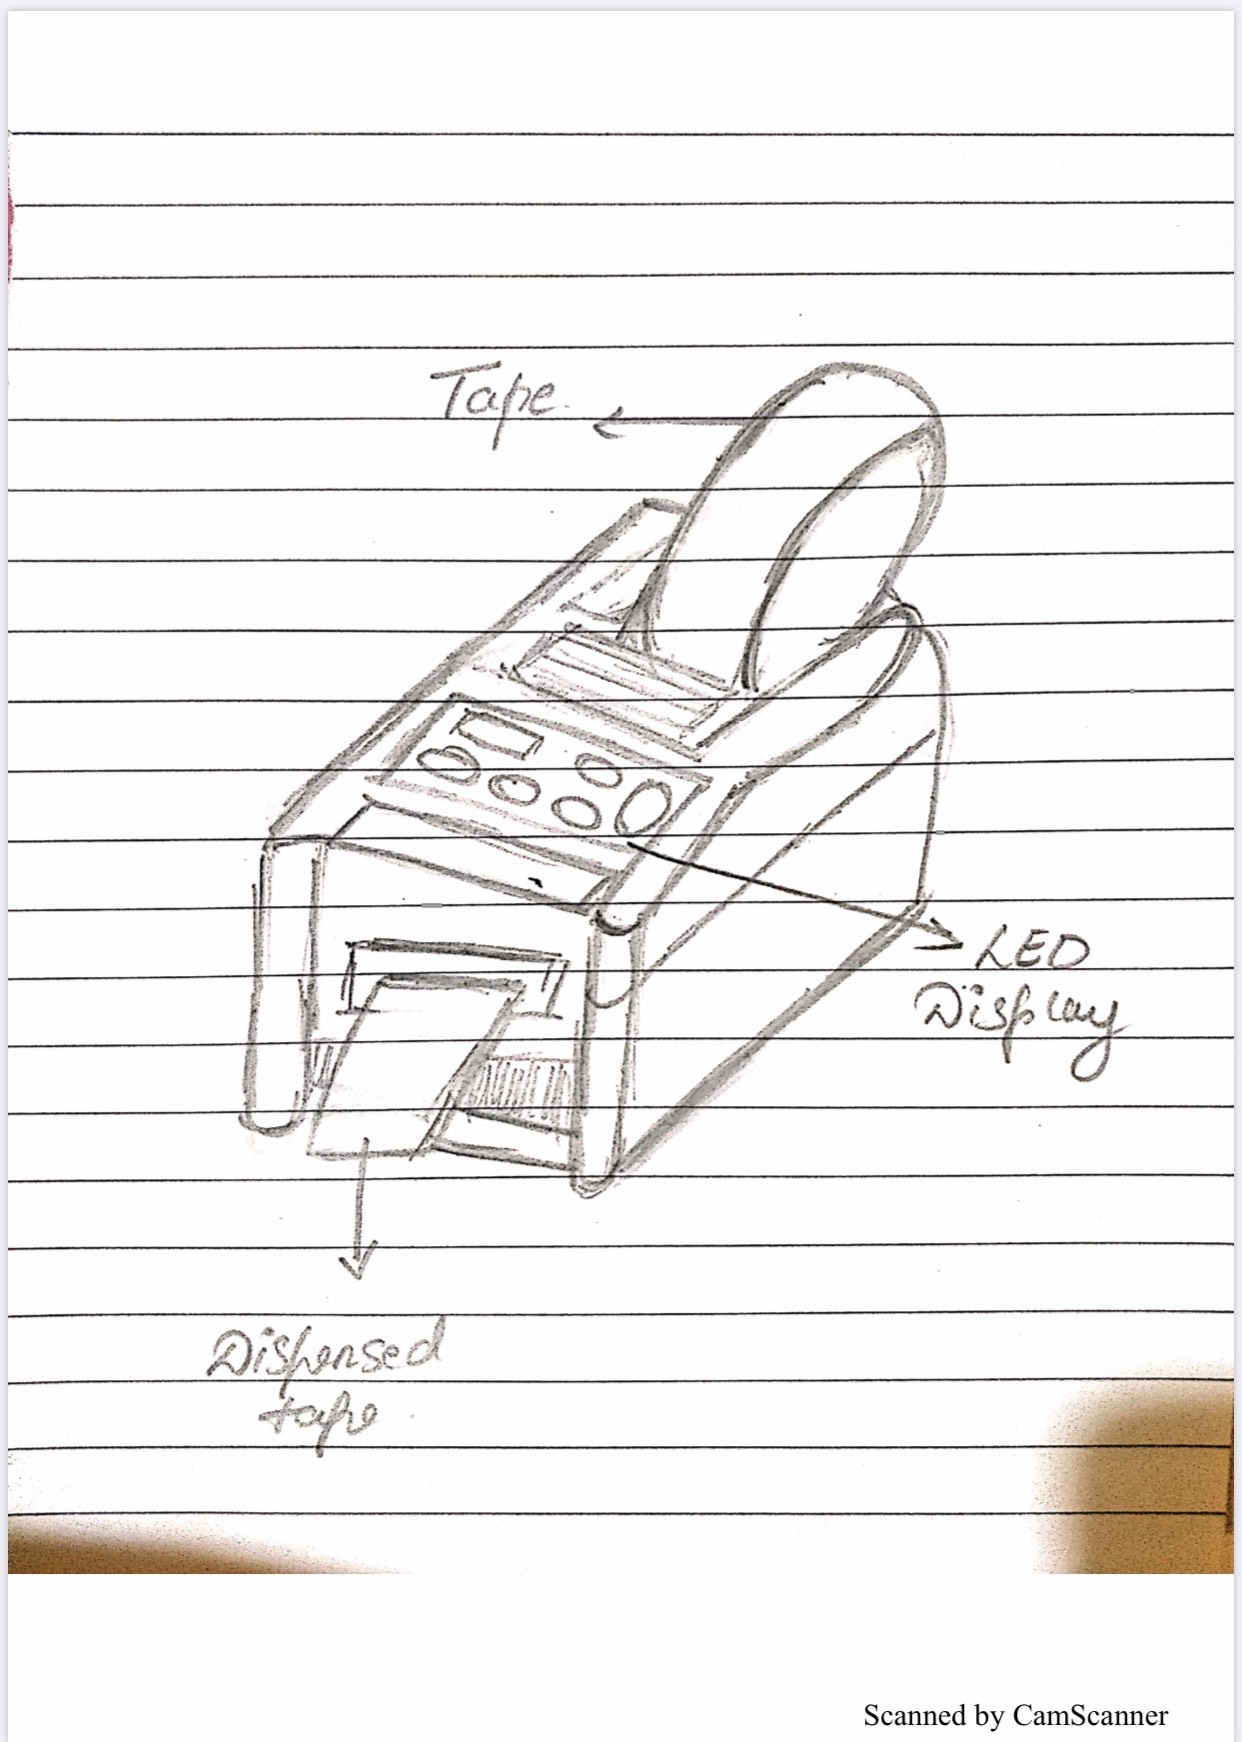 Tape
LED
Display
Dispensed
tape
Scanned by CamScanner